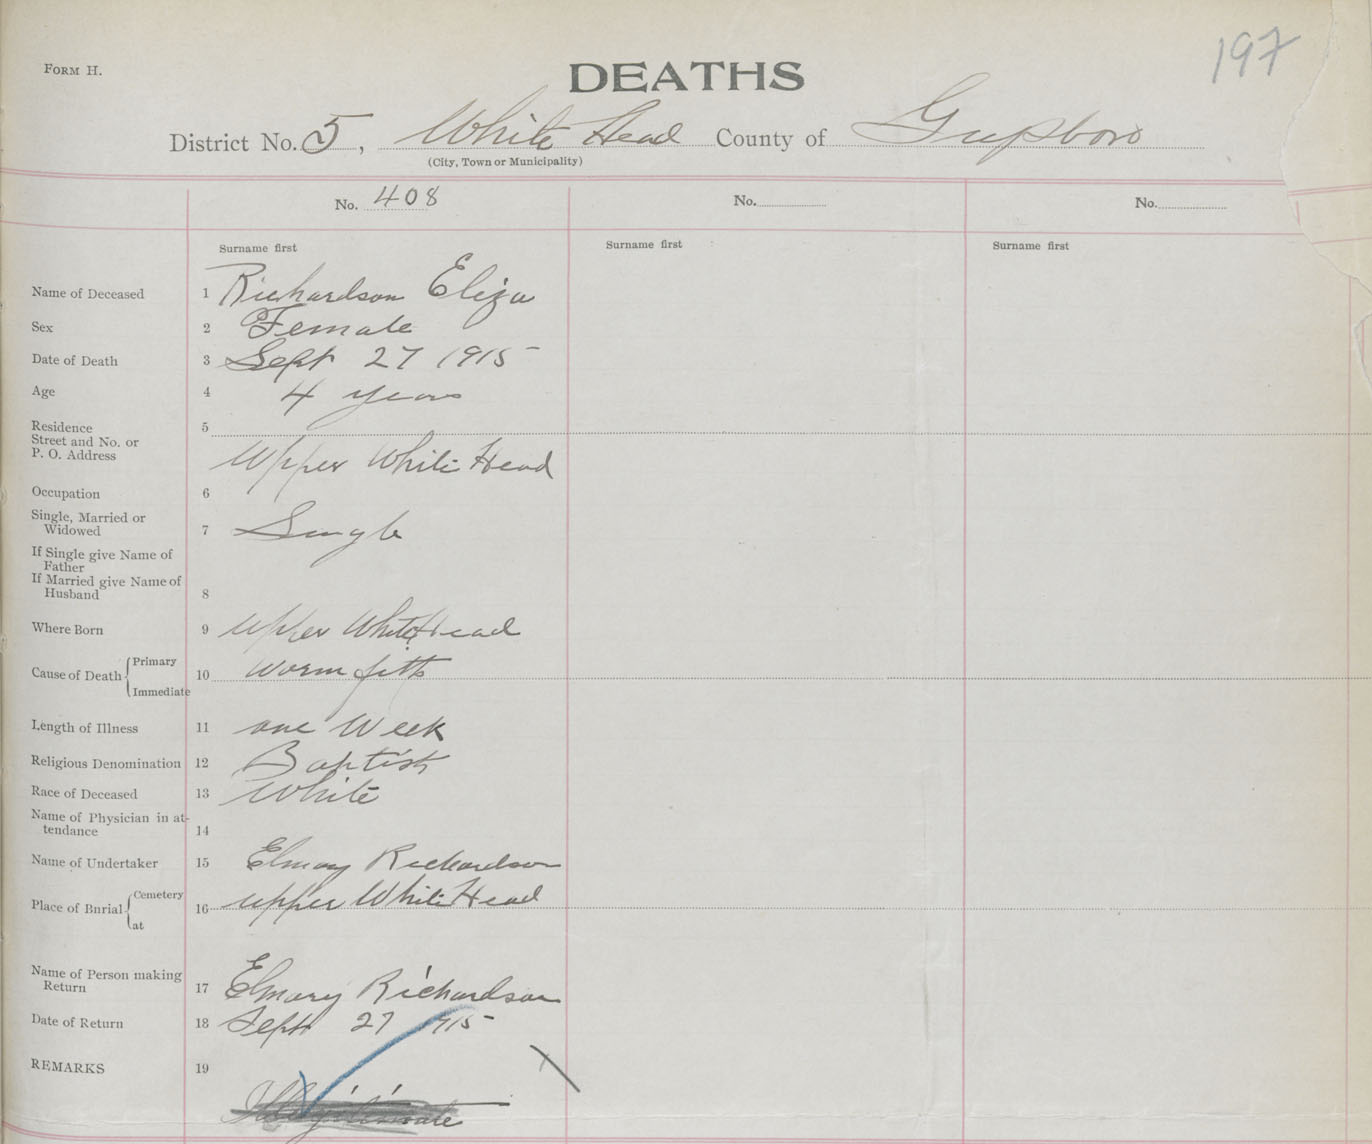 197
FORM H.
DEATHS
District No. 5, White Head County of Guysboro
(City, Town or Municipality)
No. 408 No. No.
Surname first Surname first Surname first
Name of Deceased 1 Richardson Eliza
Sex 2 Female
Date of Death 3 Sept 27 1915
Age 4 4 years
Residence 5
Street and No. or
P. O. Address Upper White Head
Occupation 6
Single, Married or
Widowed 7 Single
If Single give Name of
Father
If Married give Name of
Husband 8
Where Born 9 Upper White Head
Cause of Death Primary 10 worm fitts
Immediate
Length of Illness 11 one Week
Religious Denomination 12 Baptist
Race of Deceased 13 White
Name of Physician in at-
tendance 14
Name of Undertaker 15 Elmory Richardson
Place of Burial Cemetery 16 upper White Head
at
Name of Person making
Return 17 Elmory Richardson
Date of Return 18 Sept 27 1915
REMARKS 19
Illegitimate